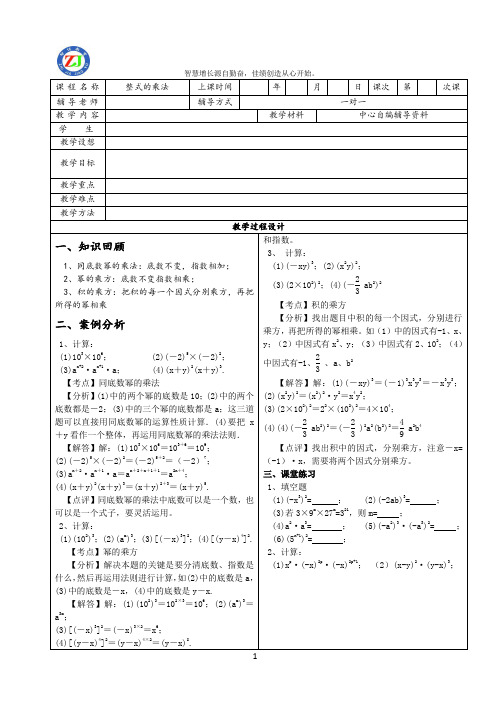 ZJ
智慧增长源自勤奋，佳绩创造从心开始。
课程名称 整式的乘法 上课时间 年 月 日 课次 第 次课
辅导老师 辅导方式 一对一
教学内容 教学材料 中心自编辅导资料
学 生
教学设想
教学目标
教学重点
教学难点
教学方法
教学过程设计
一、知识回顾
1、同底数幂的乘法：底数不变，指数相加；
2、幂的乘方：底数不变指数相乘；
3、积的乘方：把积的每一个因式分别乘方，再把
所得的幂相乘
二、案例分析
1、计算：
(1)10³×10⁶； (2)(－2)⁵×(－2)²；
(3)aⁿ⁺²·aⁿ⁺¹·a； (4)(x＋y)²(x＋y)³．
【考点】同底数幂的乘法
【分析】(1)中的两个幂的底数是10；(2)中的两个
底数都是－2；(3)中的三个幂的底数都是a；这三道
题可以直接用同底数幂的运算性质计算．(4)要把 x
＋y看作一个整体，再运用同底数幂的乘法法则．
【解答】解：(1)10³×10⁶＝10³⁺⁶＝10⁹；
(2)(－2)⁵×(－2)²＝(－2)⁵⁺²＝（－2）⁷；
(3)aⁿ⁺²·aⁿ⁺¹·a＝aⁿ⁺²⁺ⁿ⁺¹⁺¹＝a²ⁿ⁺⁴；
(4)(x＋y)²(x＋y)³＝(x＋y)²⁺³＝(x＋y)⁵．
【点评】同底数幂的乘法中底数可以是一个数，也
可以是一个式子，要灵活运用。
2、计算：
(1)(10²)³；(2)(aᵐ)³；(3)[(－x)³]²；(4)[(y－x)⁴]²．
【考点】幂的乘方
【分析】解决本题的关键是要分清底数、指数是
什么，然后再运用法则进行计算，如(2)中的底数是a，
(3)中的底数是－x，(4)中的底数是y－x．
【解答】解：(1)(10²)³＝10²ˣ³＝10⁶；(2)(aᵐ)³＝
a³ᵐ；
(3)[(－x)³]²＝(－x)³ˣ²＝x⁶；
(4)[(y－x)⁴]²＝(y－x)⁴ˣ²＝(y－x)⁸．
和指数。
3、 计算：
(1)(－xy)³；(2)(x²y)²；
(3)(2×10²)²；(4)(－2/3 ab²)²
【考点】积的乘方
【分析】找出题目中积的每一个因式，分别进行
乘方，再把所得的幂相乘。如（1）中的因式有-1、x、
y；（2）中因式有x²、y；（3）中因式有2、10²；（4）
中因式有-1、2/3 、a、b²
【解答】解：(1)(－xy)³＝(－1)³x³y³＝－x³y³；
(2)(x²y)²＝(x²)²·y²＝x⁴y²；
(3)(2×10²)²＝2²×(10²)²＝4×10⁴；
(4)(4)(－2/3 ab²)²＝(－2/3 )²a²(b²)²＝4/9 a²b⁴
【点评】找出积中的因式，分别乘方，注意－x=
(－1）·x，需要将两个因式分别乘方。
三、课堂练习
1、填空题
(1)(-x³)²=______； (2)(-2ab)³=______；
(3)若3×9ᵐ×27ᵐ=3²¹，则m=_____；
(4)a²·a³=______； (5)(-a²)³·(-a³)²=_____；
(6)(5ⁿ⁺¹)²=_______；
2、计算：
(1)xᵖ·(-x)²ᵖ·(-x)²ᵖ⁺¹； （2）(x-y)²·(y-x)³；
1